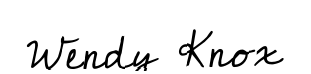 Wendy Knox